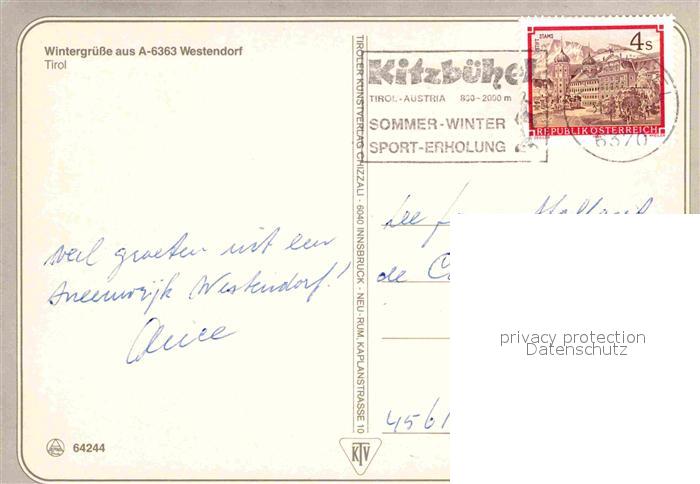 Wintergrüße aus A-6363 Westendorf
Tirol
TIROLER KUNSTVERLAG CHIZZALI · 6040 INNSBRUCK - NEU-RUM, KAPLANSTRASSE 10
Kitzbühel
TIROL-AUSTRIA 800-2000 m
SOMMER-WINTER
SPORT-ERHOLUNG
STIFT STAMS
4 S
REPUBLIK ÖSTERREICH
6370
veel groeten uit een
sneeuwrijk Westendorf!
Alice
de
4561
privacy protection
Datenschutz
64244
KTV